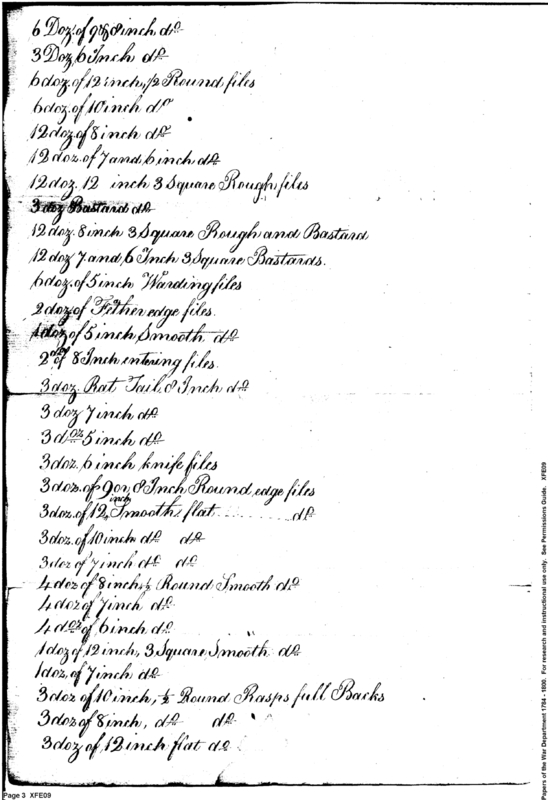 6 Doz. of 9 & 8 inch do
3 Doz, 6 Inch do
6 doz. of 12 inch, 1/2 Round files
6 doz. of 10 inch do
12 doz. of 8 inch do
12 doz. of 7 and 6 inch do
12 doz. 12 inch 3 Square Rough files
3 doz Bastard do
12 doz. 8 inch 3 Square Rough and Bastard
12 doz 7 and 6 Inch 3 Square Bastards.
6 doz. of 5 inch Warding files
2 doz of Fether edge files.
1 doz of 5 inch Smooth do
2 doz of 8 Inch entering files.
3 doz. Rat Tail 8 Inch do
3 doz 7 inch do
3 doz 5 inch do
3 doz. 6 inch knife files
3 doz. of 9 or 8 Inch Round edge files
3 doz. of 12 inch Smooth flat ........... do
3 doz. of 10 inch do do
3 doz of 7 inch do do
4 doz of 8 inch 1/2 Round Smooth do
4 doz of 7 inch do
4 doz of 6 inch do
1 doz of 12 inch, 3 Square Smooth do
1 doz, of 7 inch do
3 doz of 10 inch, 1/2 Round Rasps full Backs
3 doz of 8 inch, do do
3 doz of 12 inch flat do
Page 3 XFE09
Papers of the War Department 1784 - 1800. For research and instructional use only. See Permissions Guide. XFE09